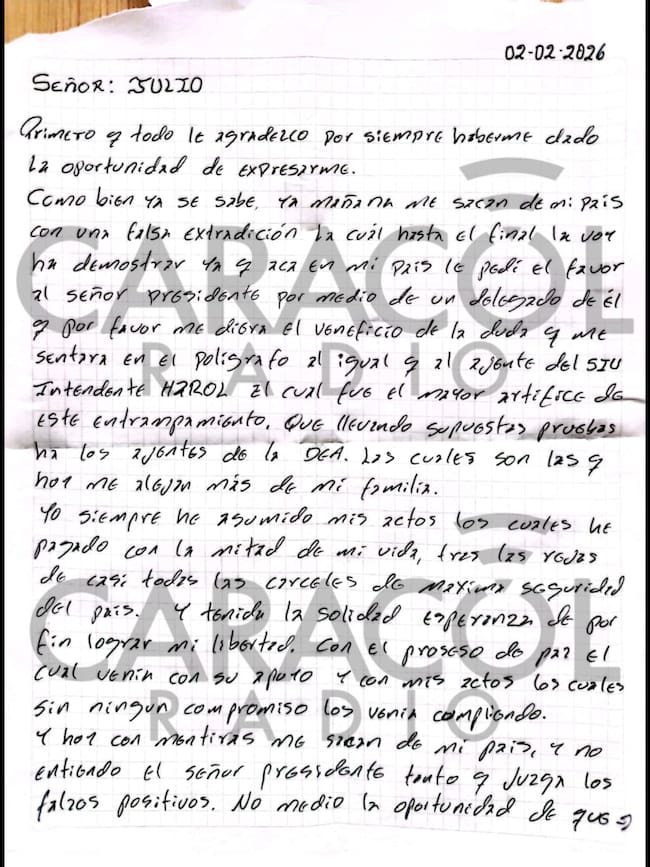 02-02-2026
SEÑOR: JULIO
Primero q todo le agradezco por siempre haberme dado
la oportunidad de expresarme.
Como bien ya se sabe, ya mañana me sacan de mi país
con una falsa extradición la cuál hasta el final la voy
ha demostrar ya q aca en mi país le pedí el favor
al señor presidente por medio de un delegado de él
q por favor me diera el veneficio de la duda q me
sentara en el polígrafo al igual q al ajente del SIU
Intendente HAROL El cual fue el mayor artifice de
este entrampamiento. Que llevando supuestas pruebas
ha los ajentes de la DEA. Las cuales son las q
hoy me alejan más de mi familia.
Yo siempre he asumido mis actos los cuales he
pagado con la mitad de mi vida, tras las rejas
de casi todas las carceles de maxima seguridad
del pais. Y tenida la solidad esperanza de por
fin lograr mi libertad. Con el proseso de paz el
cual venia con su apoyo y con mis actos los cuales
sin ningun compromiso los venia compliendo.
Y hoy con mentiras me sacan de mi pais, y no
entiendo el señor presidente tanto q juzga los
falzos positivos. No medio la oportunidad de que =>
CARACOL
RADIO
CARACOL
RADIO